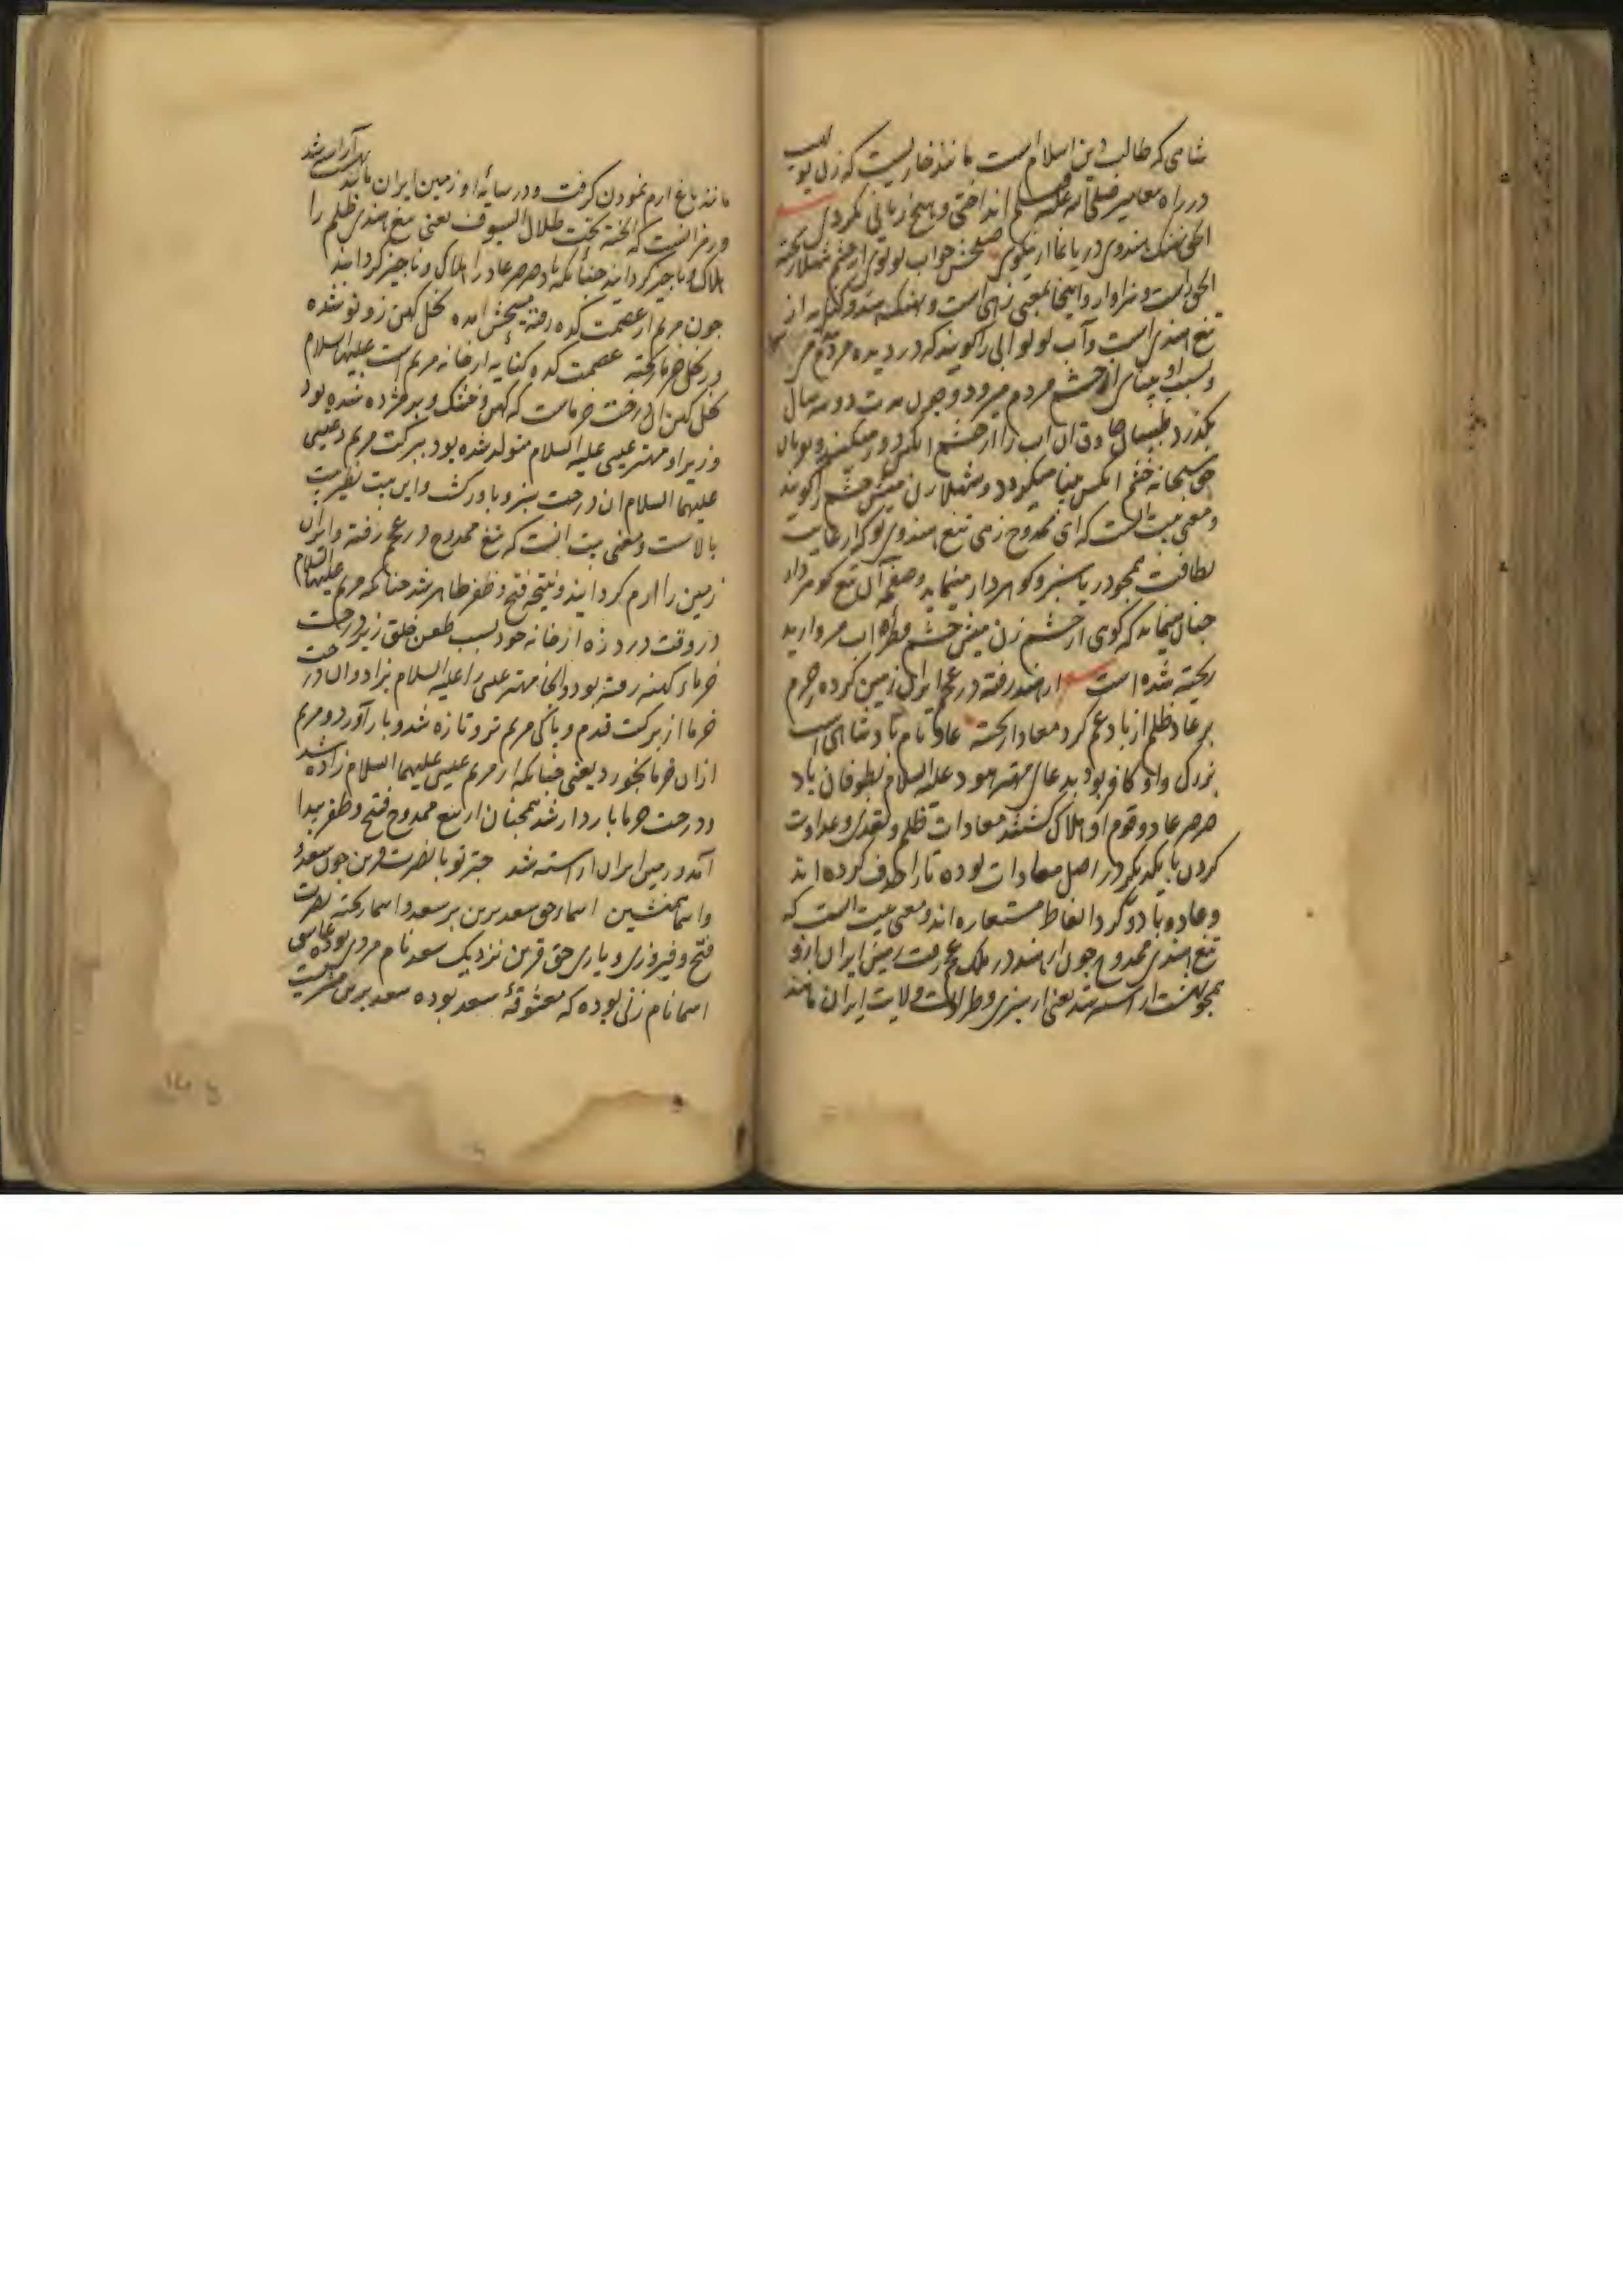 شاهی که طالب دین اسلام است مانند خاریست که زن بولهب
در راه معابر صلی الله علیه وسلم انداختی و هیچ زیانی نکردی
الحق نهنگ هندوی دریا نما از نیکوی صفحش چو آب لولوی از چشم شهلا ریخته
الحق راست و سزاوار و اینجا بمعنی زهی است و نهنگ هندو کنایه از
تیغ هندی است و آب لولو آبی را گویند که در دیده مردم
و بسبب او بینائی از چشم مردم میرود و چون مدت دو سه سال
بگذرد طبیبان حاذق آن آب را از چشم
حق سبحانه چشم آنکس بینا میگردد و شهلا زن میش چشم را گویند
و معنی بیت آنست که ای ممدوح زهی تیغ هندوی تو که از غایت
لطافت همچو دریا سبز و گوهردار مینماید و صفحه آن تیغ گوهردار
چنان مینماید که گوی از چشم زن میش چشم قطره آب مروارید
ریخته شده است از هند رفته در عجم ایران زمین کرده ارم
بر عاد ظلم از باد غم گرد معادا ریخته عاد نام پادشاهی است
بزرگ و او کافر بود بدعای مهتر هود علیه السلام بطوفان باد
صرصر عاد و قوم او هلاک گشتند معادات ظلم و تعدی و عداوت
کردن با یکدیگر در اصل معادات بوده تا را حذف کرده اند
و عاد و باد و گرد الفاظ مستعاره اند و معنی بیت آنست که
تیغ هندی ممدوح چون از هند در ملک عجم رفت زمین ایران ازو
همچو بهشت آراسته شد یعنی از سبزی و طراوت ولایت ایران مانند
مانند باغ ارم نمودن گرفت و در سایه او زمین ایران مانند بهشت آراسته شد
و رمز آنست که الجنة تحت ظلال السیوف یعنی تیغ هندی ظلم را
هلاک و ناچیز گردانید چنانکه باد صرصر عاد را هلاک و ناچیز گردانید
چون مریم از عصمت کده رفته مسیحش آمده نخل کهن زو نو شده
وز نخل خرما ریخته عصمت کده کنایه از خانه مریم است علیها السلام
نخل کهن آن درخت خرماست که کهن و خشک و پژمرده شده بود
و زیر او مهتر عیسی علیه السلام متولد شده بود ببرکت مریم و عیسی
علیهما السلام آن درخت سبز و بارور گشت و این بیت نظیر بیت
بالاست و معنی بیت آنست که تیغ ممدوح در عجم رفته و ایران
زمین را ارم گردانید و نتیجه فتح و ظفر ظاهر شد چنانکه مریم علیها السلام
در وقت درد زه از خانه خود بسبب طعن خلق زیر درخت
خرماء کهنه رفته بود و آنجا مهتر عیسی را علیه السلام بزاد و آن درخت
خرما از برکت قدم و پاکی مریم تر و تازه شد و بار آورد و مریم
ازان خرما بخورد یعنی چنانکه از مریم عیسی علیهما السلام زاده شد
و درخت خرما باردار شد همچنان از تیغ ممدوح فتح و ظفر پیدا
آمد و زمین ایران آراسته شد چتر تو با نصرت قرین چون سعد
و اسما همنشین اسما ز حق سعد برین بر سعد و اسما ریخته نصرت
فتح و فیروزی و یاری حق قرین نزدیک سعد نام مردی بوده عاشق
اسما نام زنی بوده که معشوقهٔ سعد بوده سعد برین مشتریست